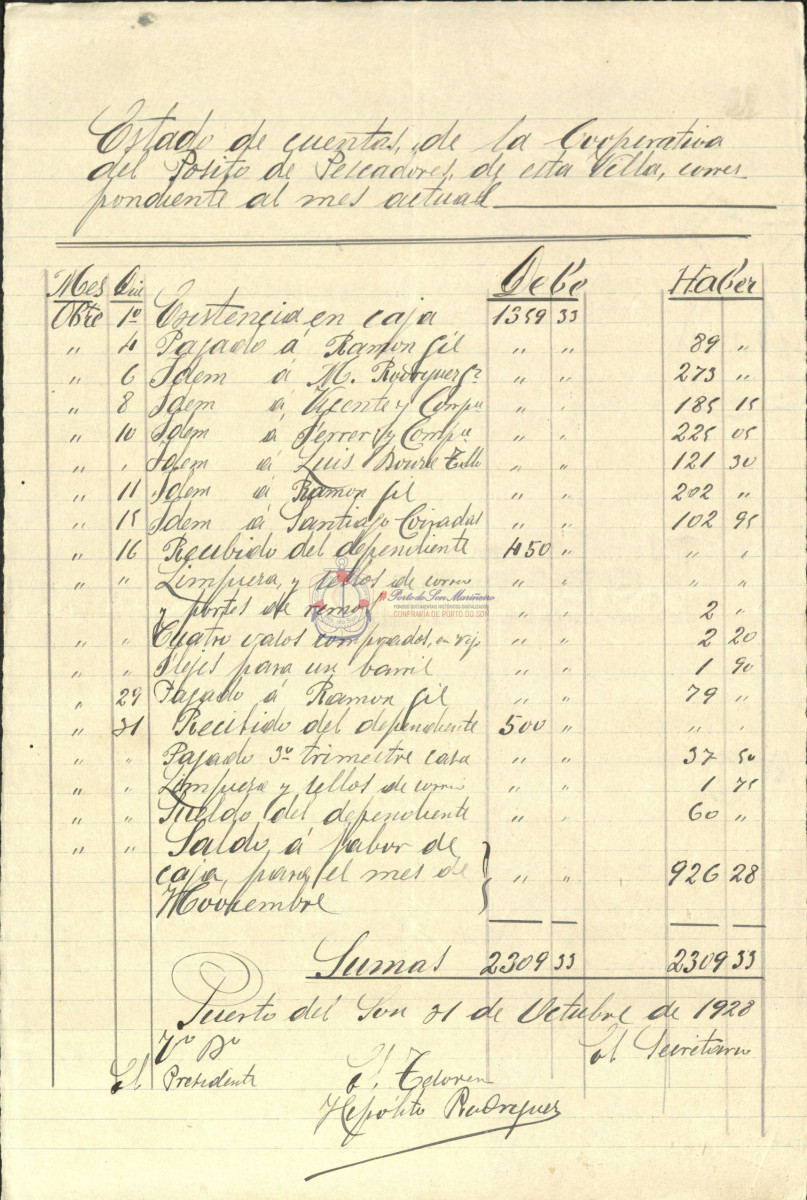 Estado de cuentas, de la Cooperativa
del Posito de Pescadores, de esta Villa, corres
pondiente al mes actual
Mes Dia Debe Haber
Obre 1º Esistencia en caja 1359 33
" 4 Pagado á Ramon Gil " " 89 "
" 6 Idem á M. Rodriguez " " 273 "
" 8 Idem á Vicente y Compª " " 185 15
" 10 Idem á Ferrer y Compª " " 225 05
" " Idem á Luis " " 121 30
" 11 Idem á Ramon Gil " " 202 "
" 15 Idem á Santiago " " 102 95
" 16 Recibido del dependiente 450 " " "
" " Limpieza, y sellos de correo " " " "
y portes de " " 2 "
" " Cuatro " " 2 20
" " Flejes para un barril " " 1 90
" 29 Pagado á Ramon Gil " " 79 "
" 31 Recibido del dependiente 500 " " "
" " Pagado 3er trimestre casa " " 37 50
" " Limpieza y sellos de correo " " 1 75
" " Sueldo del dependiente " " 60 "
" " Saldo á fabor de
caja, para el mes de " " 926 28
Noviembre
Sumas 2309 33 2309 33
Puerto del Son 31 de Octubre de 1928
Vº Bº El Secretario
El Presidente El
Hipólito Rodriguez
Porto do Son Mariñeiro
FONDOS DOCUMENTAIS HISTÓRICOS DIXITALIZADOS
CONFRARÍA DE PORTO DO SON